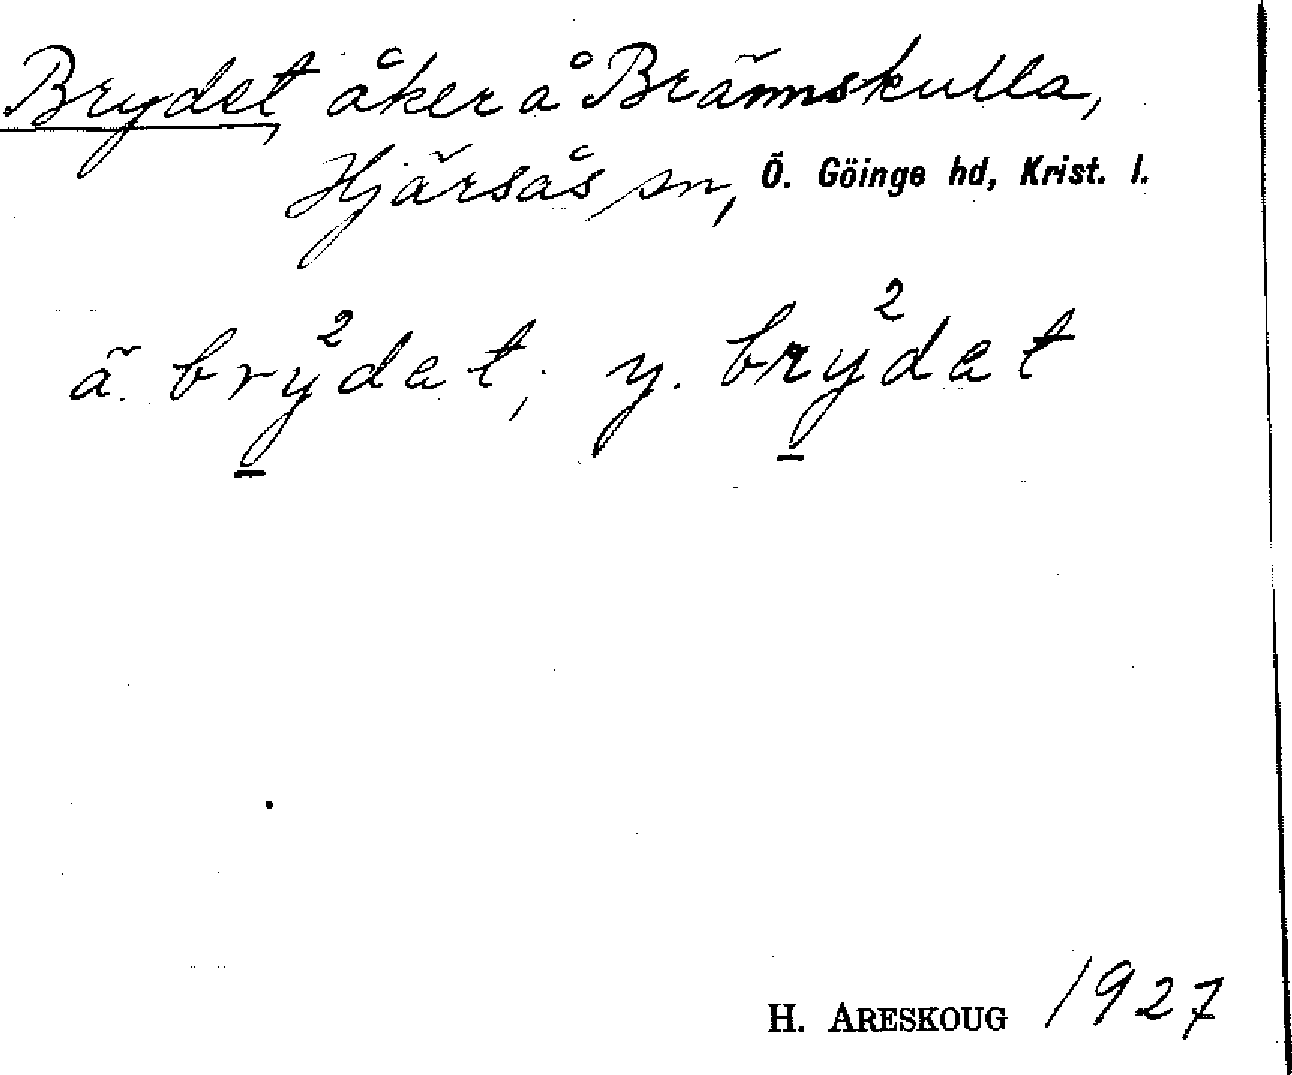 Brydet, åker å Brännskulla,
Hjärsås sn, Ö. Göinge hd, Krist. l.
ä. brỳ²dat, y. brỳ²dat
H. ARESKOUG 1927